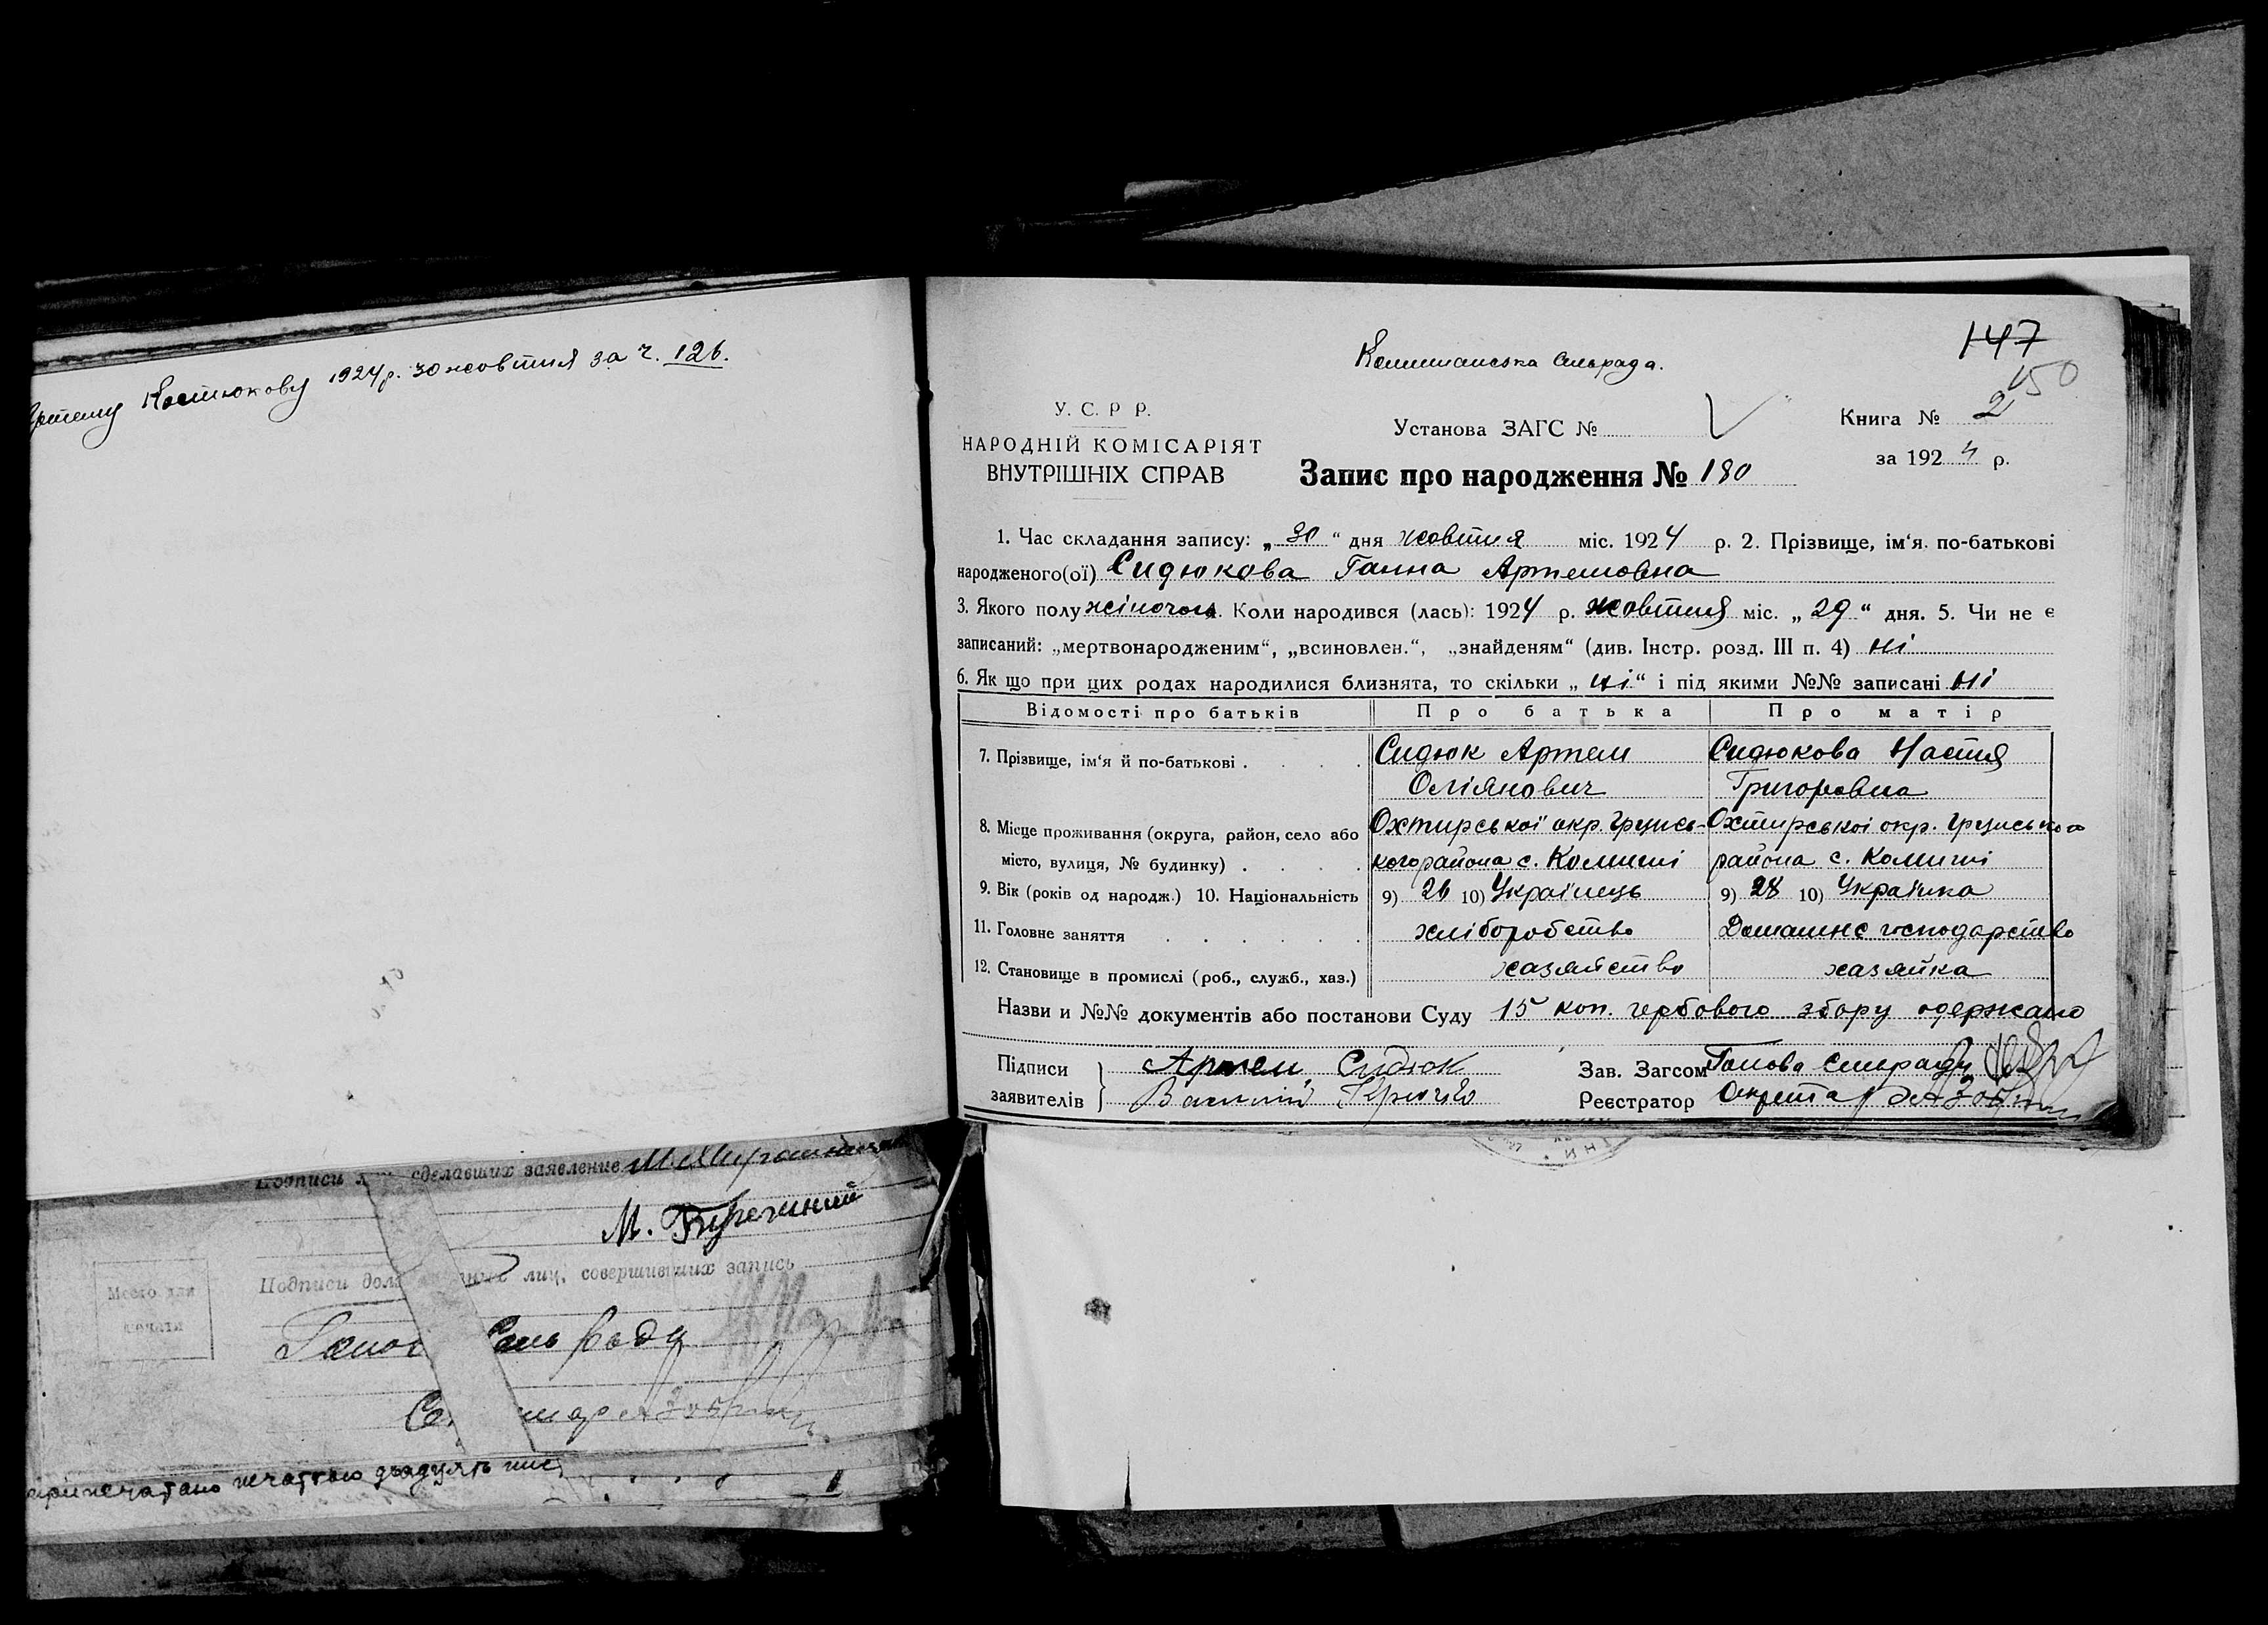 Артему Костюкову 1924 р. 30 жовтня за ч. 126.
Подписи сделавших заявление
М.
Подписи лиц, совершивших запись
Место для
печати
Голов Сель ради
припечатано печаттю двадцять
Комишанська сільрада.
147
150
У. С. Р Р.
НАРОДНІЙ КОМІСАРІЯТ
ВНУТРІШНІХ СПРАВ
Установа ЗАГС №
Книга № 2
за 1924 р.
Запис про народження № 180
1. Час складання запису: „30“ дня жовтня міс. 1924 р. 2. Прізвище, ім‘я. по-батькові
народженого(ої) Сидюкова Ганна Артемовна
3. Якого полу жіночого. Коли народився (лась): 1924 р. жовтня міс. „29“ дня. 5. Чи не є
записаний: „мертвонародженим“, „всиновлен.“, „знайденям“ (див. Інстр. розд. III п. 4) ні
6. Як що при цих родах народилися близнята, то скільки „ні“ і під якими №№ записані ні
Відомості про батьків Про батька Про матір
7. Прізвище, ім‘я й по-батькові . . . . Сидюк Артем Сидюкова Настя
Оліянович Григоровна
8. Місце проживання (округа, район, село або Охтирської окр. Грунсь- Охтирської окр. Грунського
місто, вулиця, № будинку) . . . . кого района с. Комиші района с. Комиші
9. Вік (років од народж.) 10. Національність 9) 26 10) Українець 9) 28 10) Українка
11. Головне заняття . . . . . . хліборобство Домашнє господарство
12. Становище в промислі (роб., служб., хаз.) хазяйство хазяйка
Назви и №№ документів або постанови Суду 15 коп. гербового збору одержано
Підписи Артем Сидюк Зав. Загсом Голова сільради
заявителів Василій Крючко Реєстратор Секретар